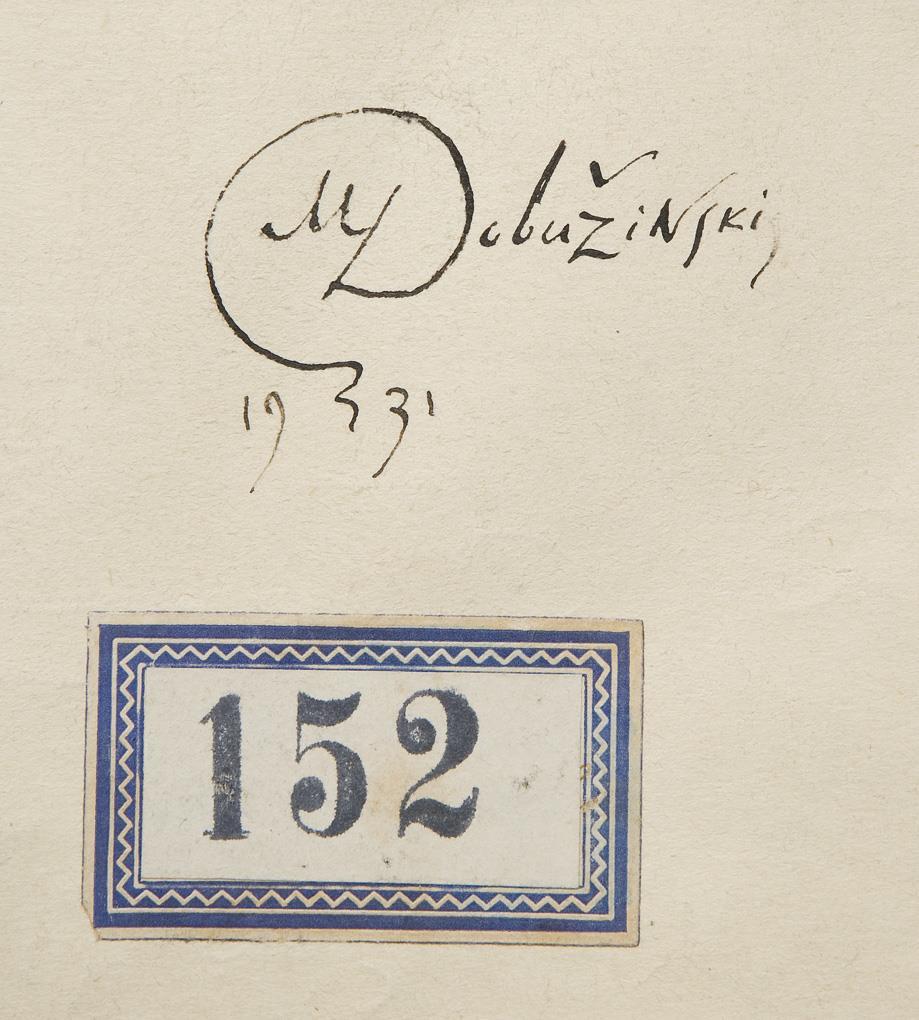 M Dobužinskij
19 31
152